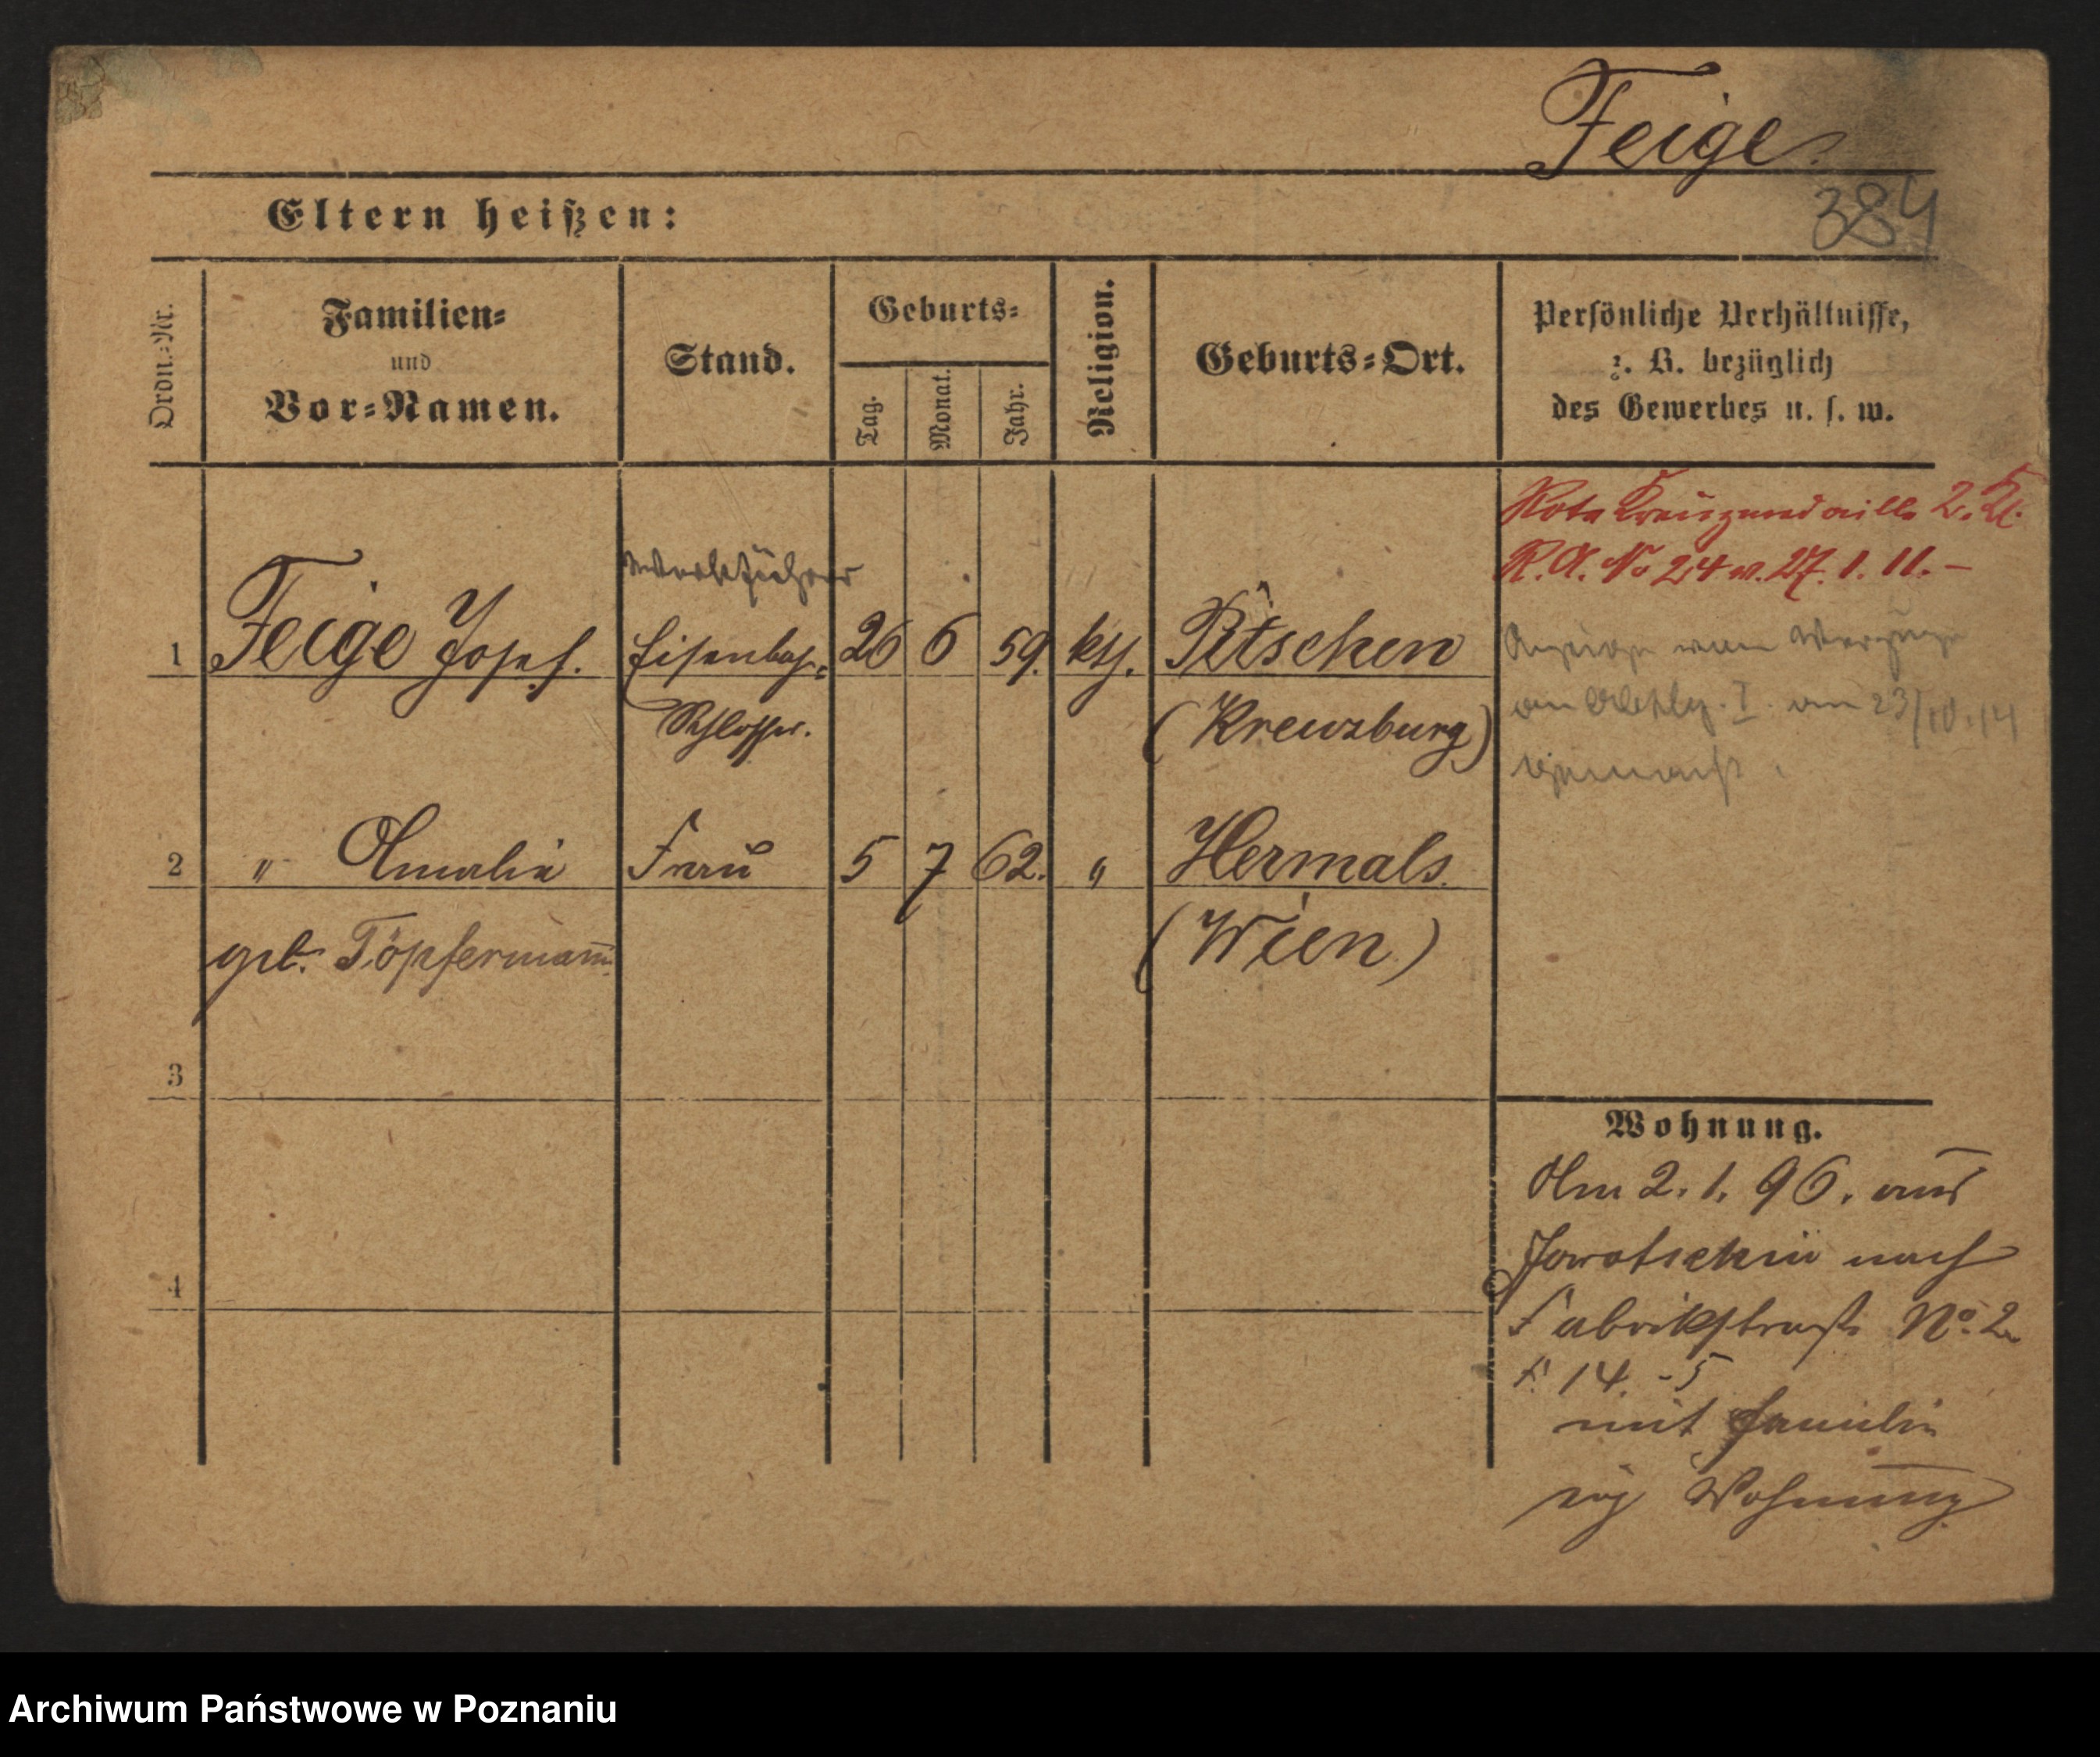 Feige.
384
Eltern heißen:
Ordn.-Nr.
Familien-
und
Vor-Namen.
Stand.
Geburts-
Tag.
Monat.
Jahr.
Religion.
Geburts-Ort.
Persönliche Verhältnisse,
z. B. bezüglich
des Gewerbes u. s. w.
Rote Kreuzmedaille 2. Kl.
R. A. No 24 v. 27. 1. 11. –
Werkführer
1 Feige Josef. Eisenbahn- 26 6 59. kth. Pitschen
Schlosser. (Kreuzburg)
Anzeige vom Verzuge
an Abthlg. I. am 23/10.14
gemacht.
2 " Amalie Frau 5 7 62. " Hermals.
geb. Töpfermann (Wien)
3
4
Wohnung.
Am 2. 1. 96. aus
Jarotschin nach
Fabrikstraße No. 2
14. -5
mit Familie
Wohnung
Archiwum Państwowe w Poznaniu